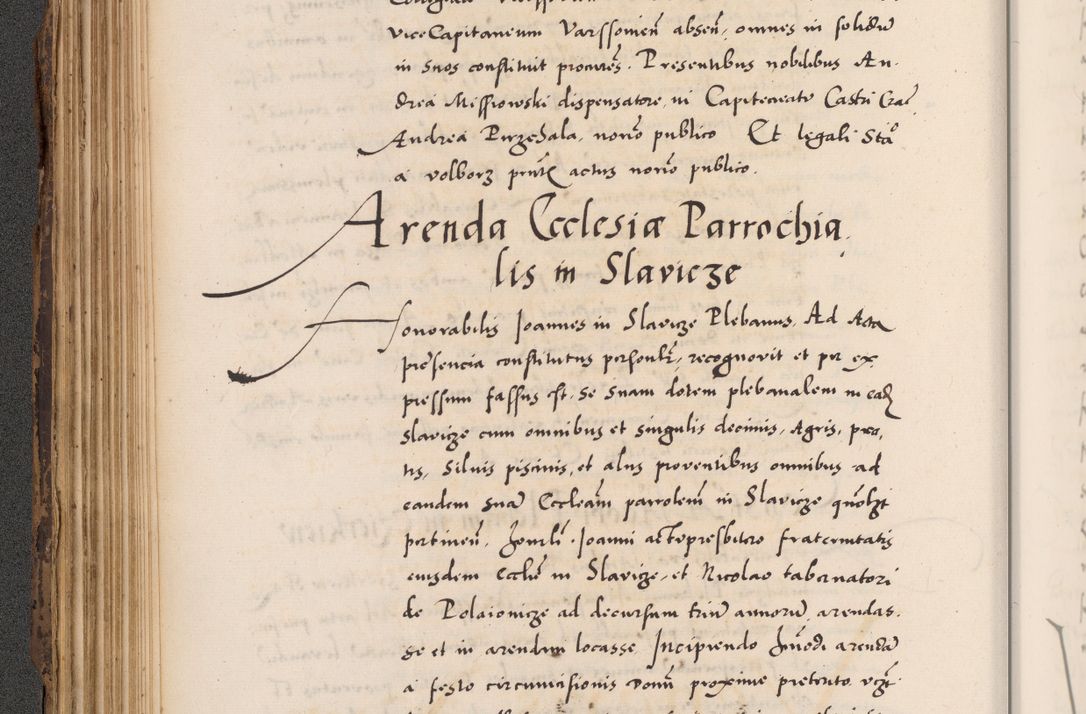 viceCapitaneum Varssovien̄ absen̄, omnes in solidū
in suos constituit procures̄. Presentibus nobilibus An-
drea Missiowski dispensatore in Capitaneatu Castri Crac̄
Andrea Purzehala, norīo publico Et legali Sta
a volborz pn̄te actus norīo publico.
Arenda Ecclesiæ Parrochia
lis in Slavicze
Honorabilis Joannes in Slavicze Plebanus, Ad Acta
presencia constitutus personlr̄, recognovit et per ex
pressum fassus est, Se suam dotem plebanalem in eadē
Slavicze cum omnibus et singulis decimis, Agris, pra,
tis, Silvis piscinis, et aliis proventibus omnibus ad
eandem suā Eccleām parrolem̄ in Slavicze
pertinen̄, Honrli Joanni altipresbitero fraternitatis
eiusdem Ecclie in Slavicze, et Nicolao tabernatori
de Polaionicze ad decursum triū annorū arendas.
se et in arendam locasse Incipiendo hm̄odi arendā
a festo circumcisionis Domī proxime preterito